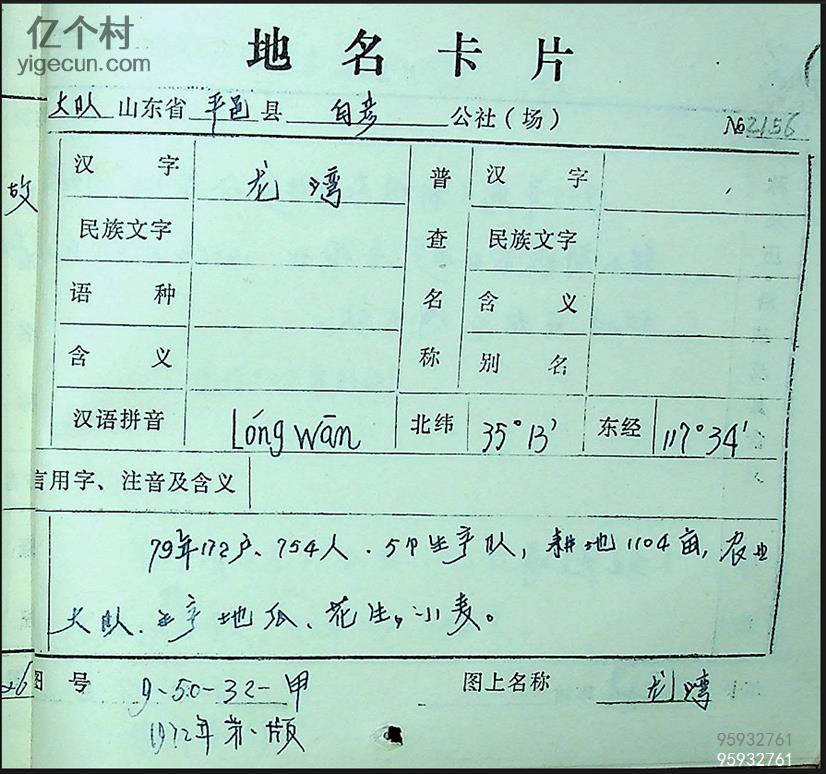 亿个村
yigecun.com
地名卡片
大队 山东省 平邑 县 白彦 公社(场)
№2156
故
汉字 龙湾 普查名称 汉字
民族文字 民族文字
语种 含义
含义 别名
汉语拼音 Lóng wān 北纬 35°13′ 东经 117°34′
言用字、注音及含义
79年172户、754人、5个生产队,耕地1104亩,农业
大队、主产地瓜、花生,小麦。
图号 9-50-32-甲 图上名称 龙湾
1972年第一版
95932761
95932761